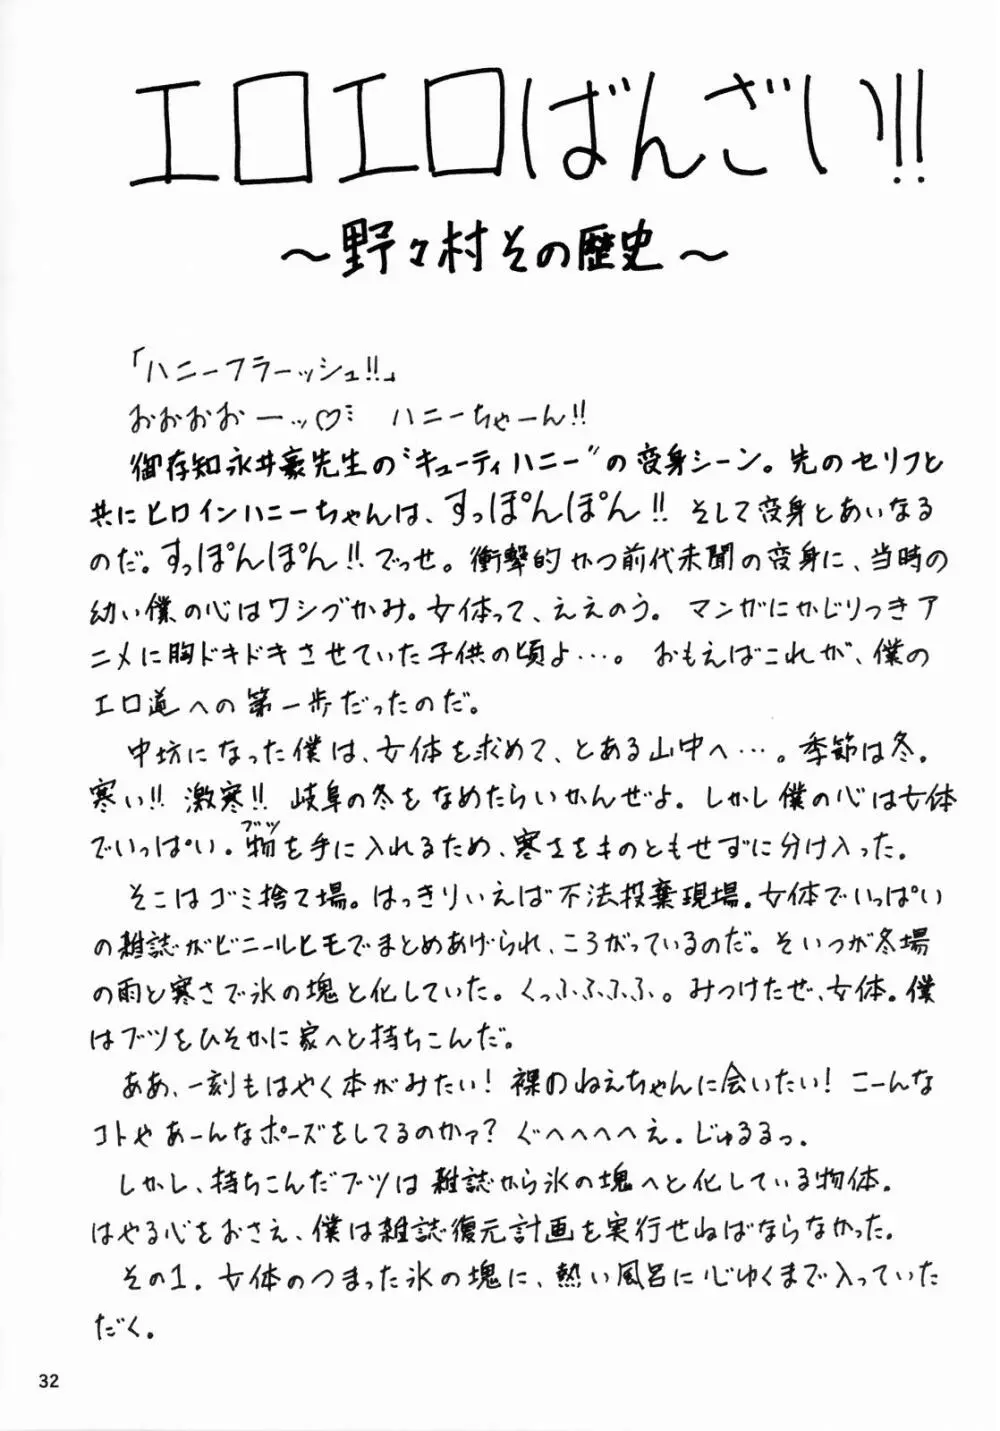 エロエロばんざい!!
～野々村その歴史～
「ハニーフラーッシュ!!」
おぉぉおーッ♡ ハニーちゃーん!!
御存知永井豪先生の“キューティハニー”の変身シーン。先のセリフと
共にヒロインハニーちゃんは、すっぽんぽん!! そして変身とあいなる
のだ。すっぽんぽん!!でっせ。衝撃的かつ前代未聞の変身に、当時の
幼い僕の心はワシづかみ。女体って、ええのう。 マンガにかじりつきア
ニメに胸ドキドキさせていた子供の頃よ…。 おもえばこれが、僕の
エロ道への第一歩だったのだ。
中坊になった僕は、女体を求めて、とある山中へ…。季節は冬。
寒い!! 激寒!! 岐阜の冬をなめたらいかんぜよ。しかし僕の心は女体
でいっぱい。物を手に入れるため、寒さをものともせずに分け入った。
ブツ
そこはゴミ捨て場。はっきりいえば不法投棄現場。女体でいっぱい
の雑誌がビニールヒモでまとめあげられ、ころがっているのだ。そいつが冬場
の雨と寒さで氷の塊と化していた。くっふふふふ。みつけたぜ、女体。僕
はブツをひそかに家へと持ちこんだ。
ああ、一刻もはやく本がみたい! 裸のねえちゃんに会いたい! こーんな
コトやあーんなポーズをしてるのかァ? ぐへへへへえ。じゅるるっ。
しかし、持ちこんだブツは雑誌から氷の塊へと化している物体。
はやる心をおさえ、僕は雑誌復元計画を実行せねばならなかった。
その1. 女体のつまった氷の塊に、熱い風呂に心ゆくまで入っていた
だく。
32